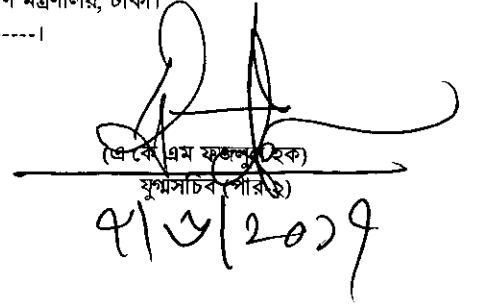 মন্ত্রণালয়, ঢাকা।
-----।
(এ কে এম ফজলুল হক)
যুগ্মসচিব (পার-২)
৭/৩/২০১৭